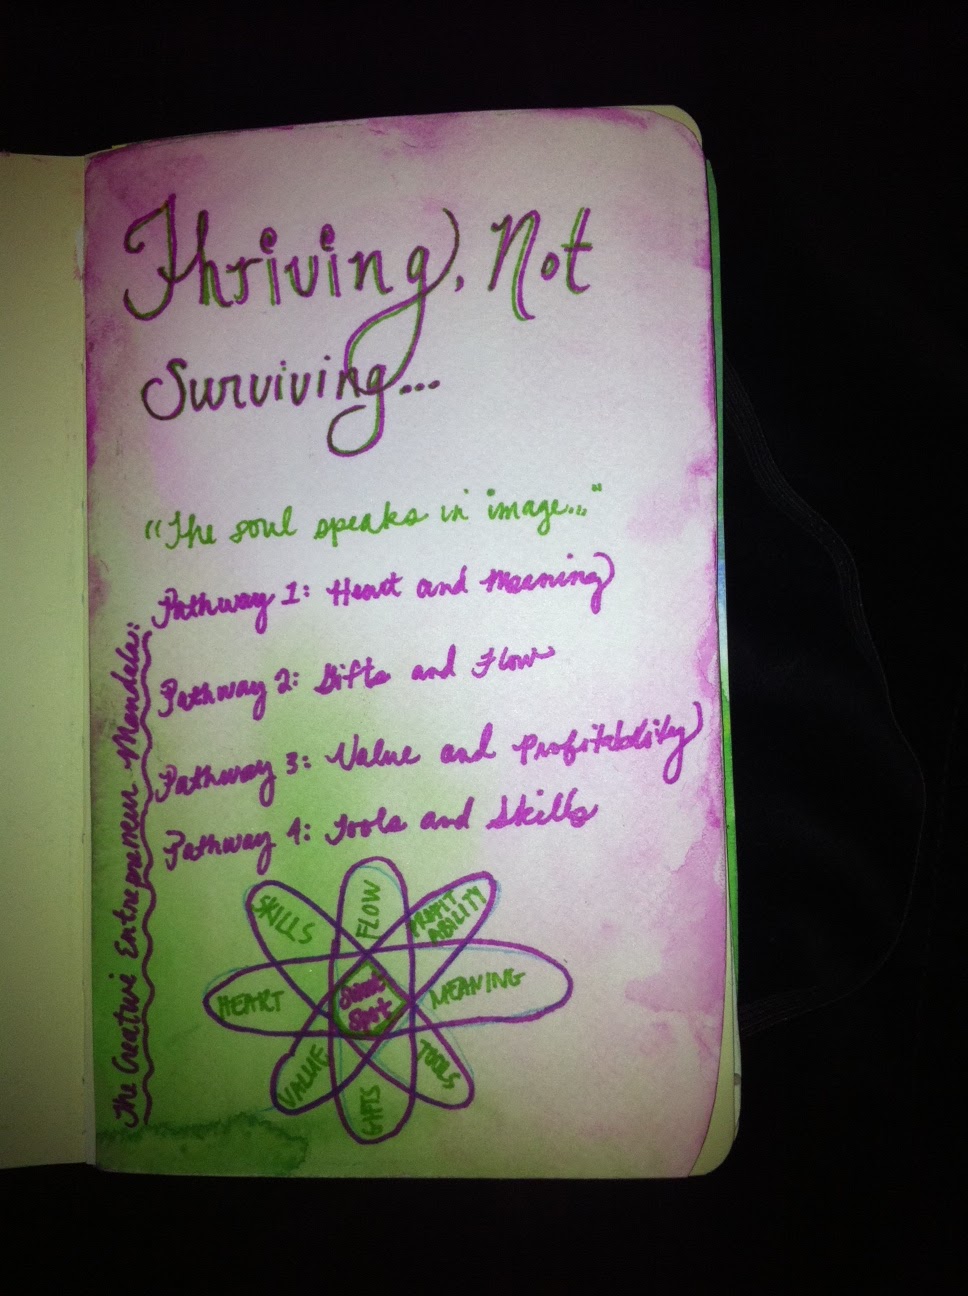 Thriving, Not
Surviving...
"The soul speaks in image..."
Pathway 1: Heart and Meaning
Pathway 2: Gifts and Flow
Pathway 3: Value and Profitability
Pathway 4: Tools and Skills
The Creative Entrepreneur Mandala:
SKILLS
FLOW
PROFIT
ABILITY
HEART
Sweet
Spot
MEANING
VALUE
GIFTS
TOOLS